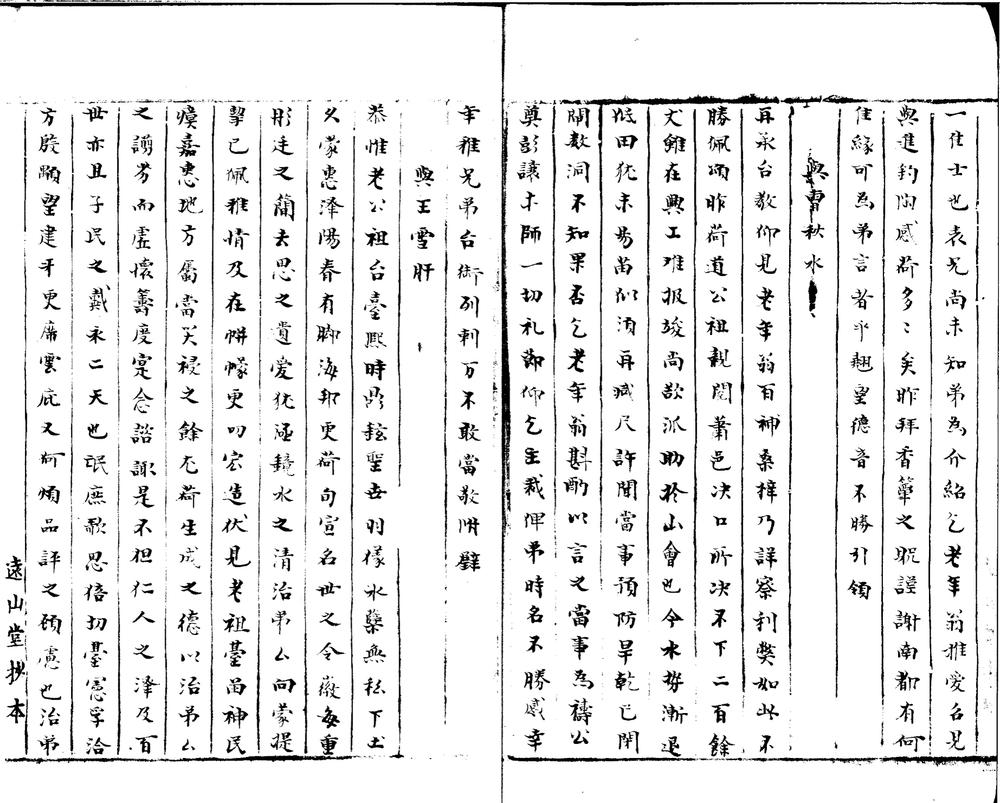 一佳士也表兄尚未知弟為介紹乞老年翁推愛召見
與進鈞陶感荷多〻矣昨拜香篆之貺謹謝南都有何
佳緣可為弟言者乎翹望德音不勝引領
與曹秋水
再承台教仰見老年翁百補桑梓乃詳察利獘如此不
勝佩頌昨荷道公祖親閱蕭邑决口所决不下二百餘
丈雖在興工难报竣尚欲派助於山會也今水勢漸退
低田犹未昜苗似須再減尺許聞當事預防旱乾已閉
閘數洞不知果否乞老年翁斟酌以言之當事為禱公
奠彭讓木師一切礼節仰乞主裁俾弟時名不勝感幸
幸雅兄弟台衔列刺万不敢當敬附璧
與王雪肝
恭惟老公祖台臺熙時鼎鉉聖世羽儀水蘗無私下土
久蒙惠澤陽春有脚海邦更荷旬宣名世之令徽每重
彤廷之蘭去思之遺愛犹涵鏡水之清治弟厶向蒙提
挈已佩雅情及在帡幪更叨宏造伏見老祖臺畄神民
瘼嘉惠地方屬當災祲之餘尤荷生成之德以治弟厶
之謭劣而虛懷籌度寔念諮諏是不但仁人之澤及百
世亦且子民之戴永二天也氓庶歌思倍切臺憲孚洽
方殷顒望建牙更廣雲庇又何煩品評之頋慮也治弟
遠山堂抄本